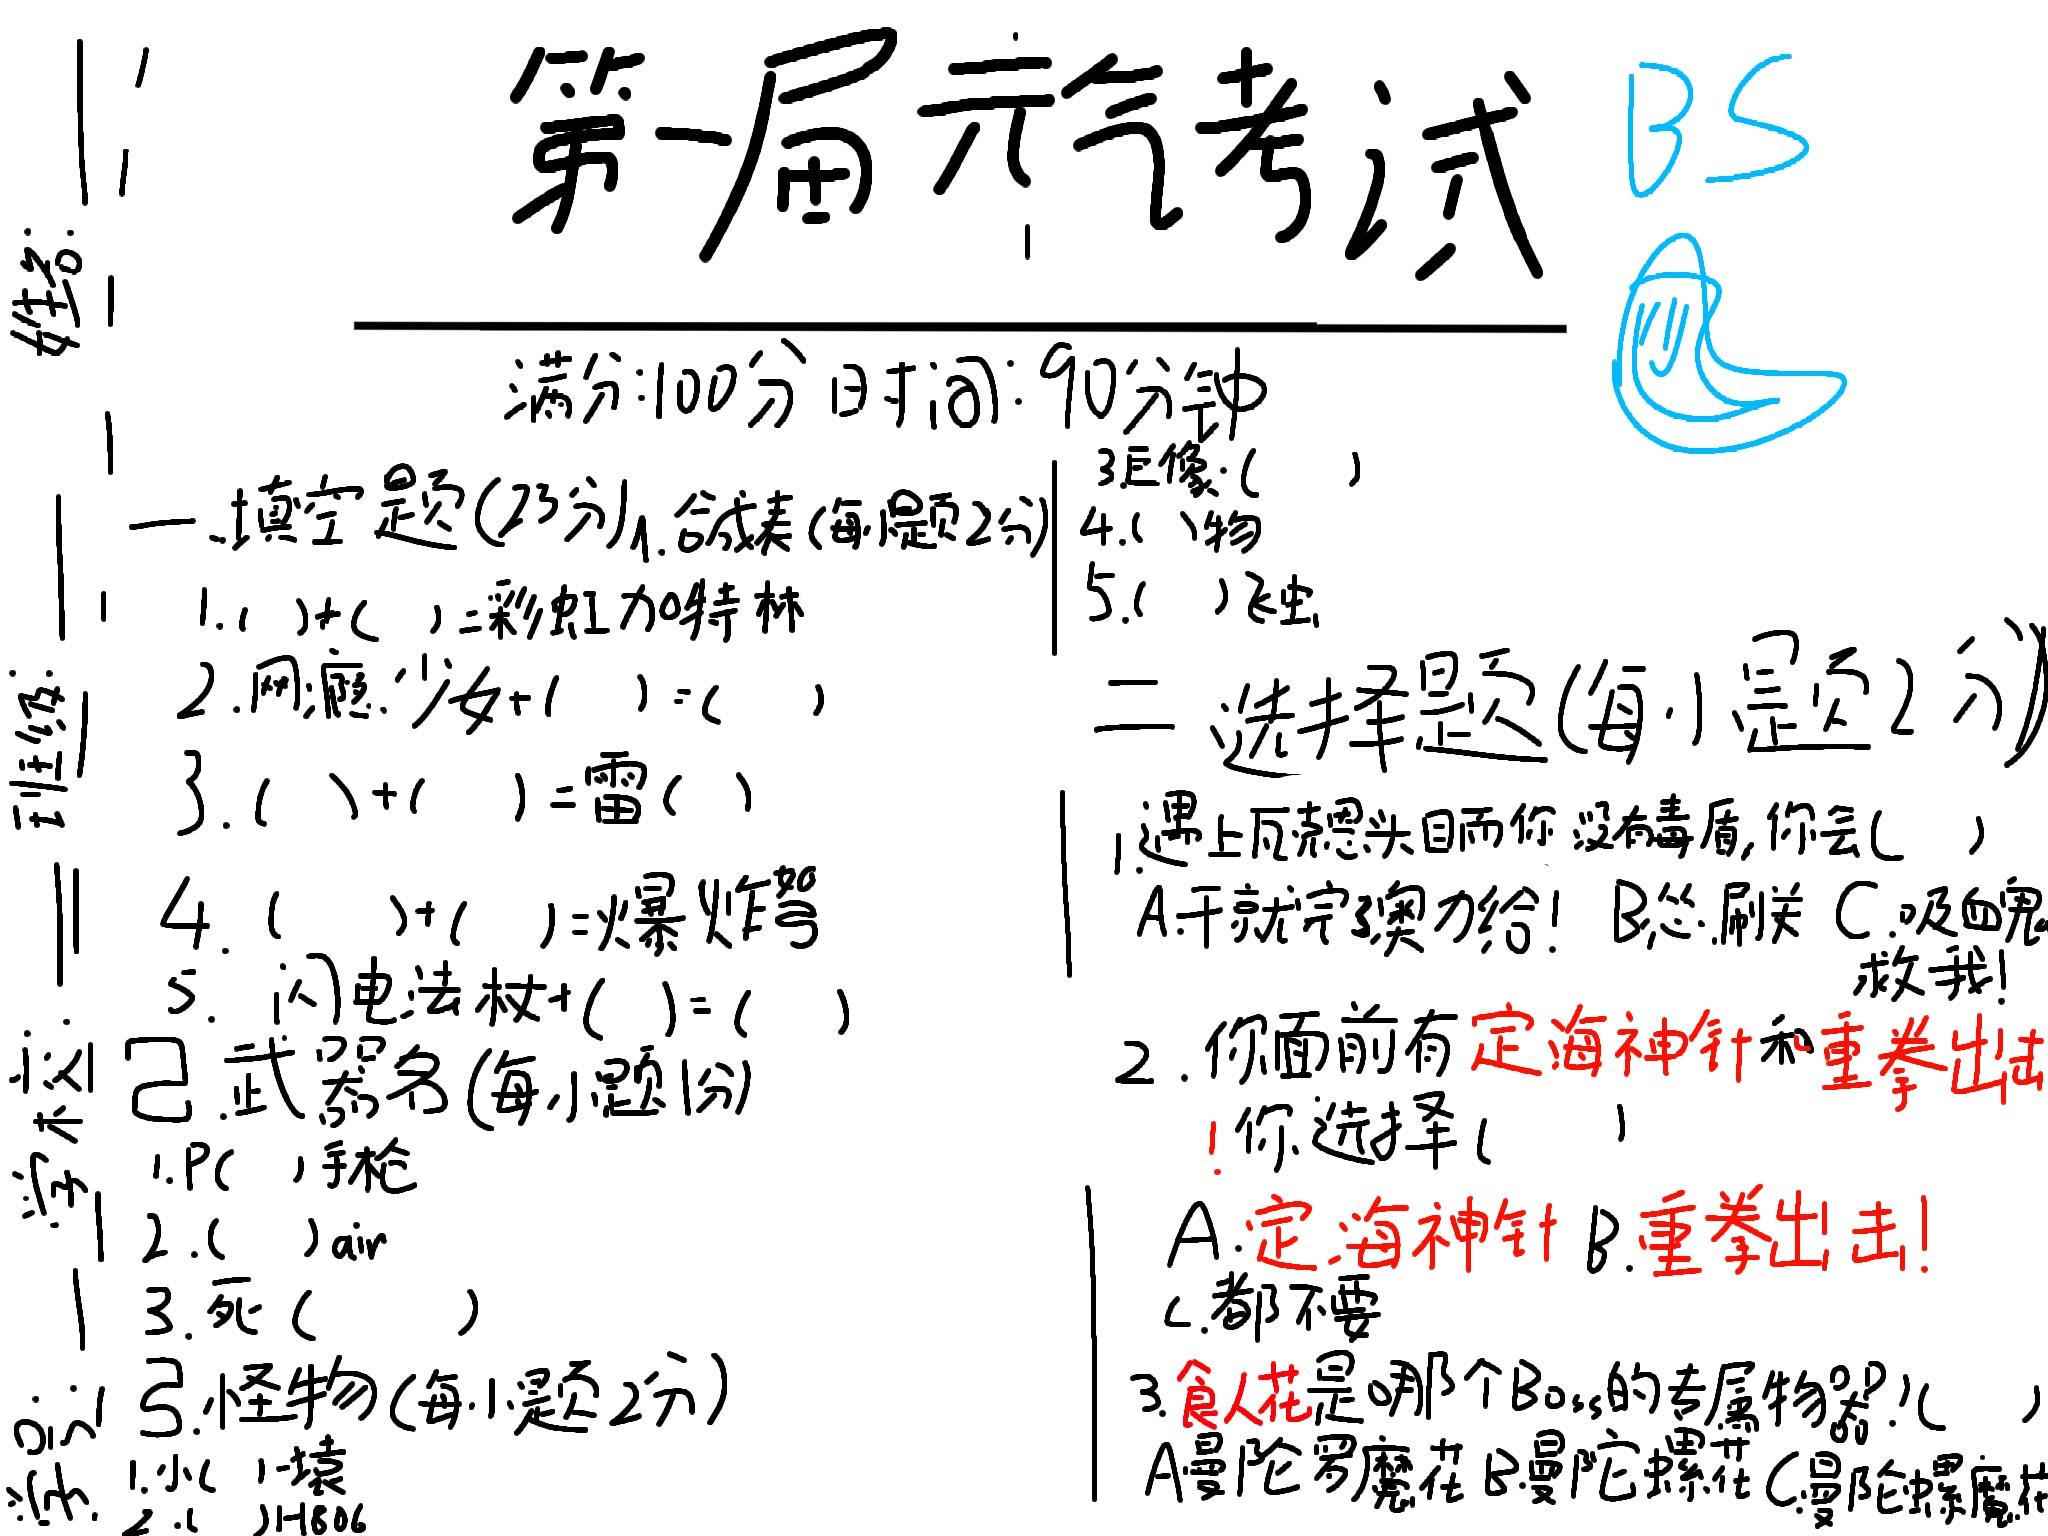 第一届元气考试
BS
满分:100分 时间:90分钟
姓名:
班级:
学校:
学号:
一.填空题(23分)1.合成表(每小题2分)
1.( )+( )=彩虹加特林
2.网瘾少女+( )=( )
3.( )+( )=雷( )
4.( )+( )=爆炸弩
5.闪电法杖+( )=( )
2.武器名(每小题1分)
1.P( )手枪
2.( )air
3.死( )
3.怪物(每小题2分)
1.小( )猿
2.( )H806
3.巨像·( )
4.( )物
5.( )飞虫
二 选择题(每小题2分)
1.遇上瓦克恩头目而你没有毒盾,你会( )
A.干就完了奥力给! B.怂.刷关 C.吸血鬼
救我!
2.你面前有定海神针和重拳出击
!你选择( )
A.定海神针 B.重拳出击!
C.都不要
3.食人花是哪个Boss的专属物器?( )
A曼陀罗魔花 B.曼陀螺花 C.曼陀螺魔花